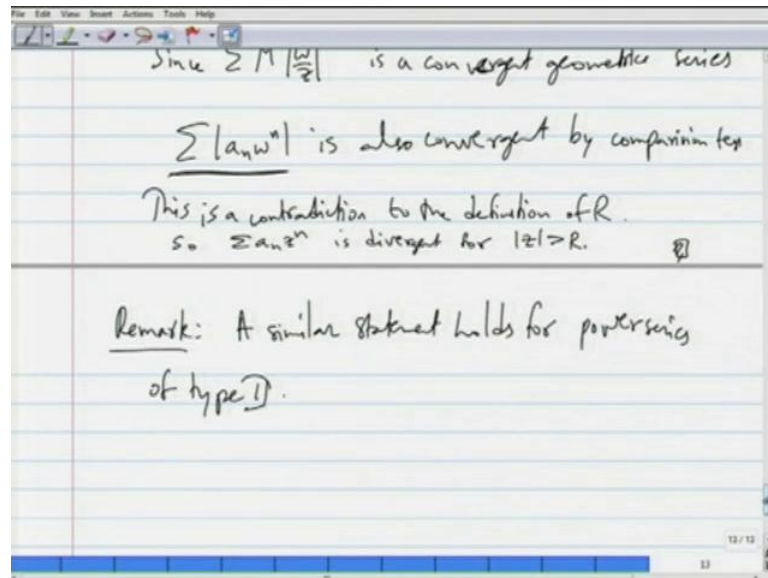 File Edit View Insert Actions Tools Help
Since Σ M |w/z| is a convergent geometric series
Σ |aₙwⁿ| is also convergent by comparision tes
This is a contradiction to the definition of R.
so Σaₙzⁿ is divergent for |z|>R.
Remark: A similar statement holds for power series
of type I.
13/13
13